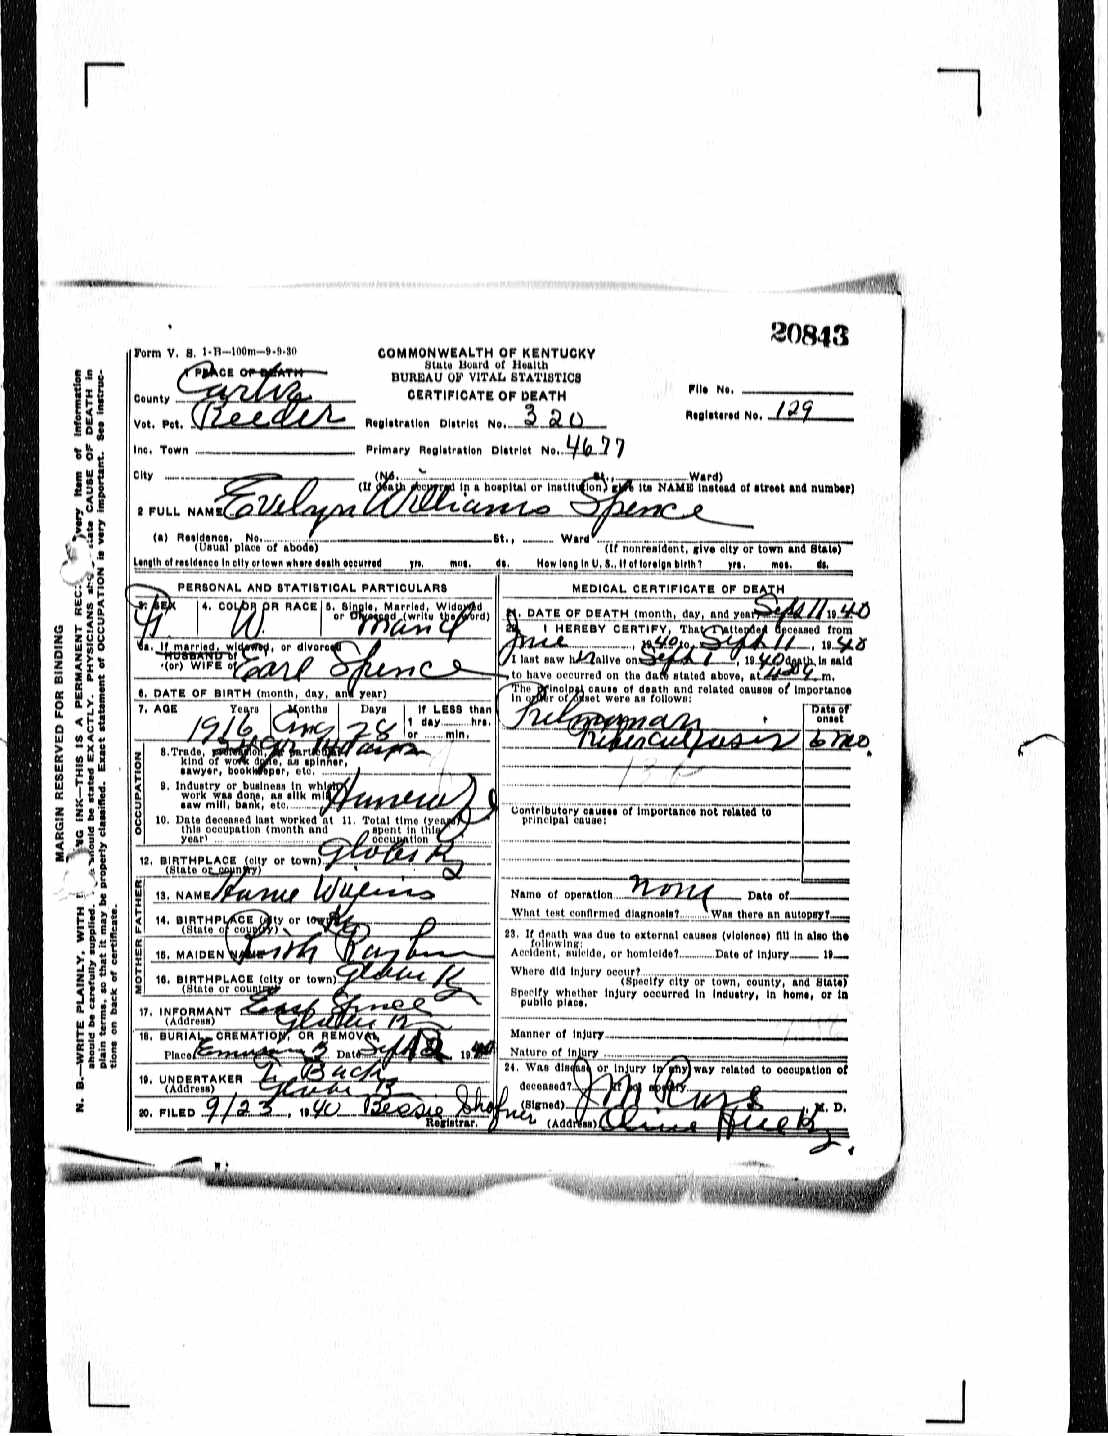 20843
Form V. S. 1-B—100m—9-9-30
COMMONWEALTH OF KENTUCKY
State Board of Health
BUREAU OF VITAL STATISTICS
CERTIFICATE OF DEATH
1 PLACE OF DEATH
County Carter
File No.
Vot. Pct. Reeder
Registration District No. 320
Registered No. 129
Inc. Town
Primary Registration District No. 4677
City (No. St., Ward)
(If death occurred in a hospital or institution, give its NAME instead of street and number)
2 FULL NAME Evelyn Williams Spence
(a) Residence. No. St., Ward
(Usual place of abode) (If nonresident, give city or town and State)
Length of residence in city or town where death occurred yrs. mos. ds. How long in U. S., if of foreign birth? yrs. mos. ds.
PERSONAL AND STATISTICAL PARTICULARS
3. SEX F
4. COLOR OR RACE W.
5. Single, Married, Widowed
or Divorced (write the word)
5a. If married, widowed, or divorced
HUSBAND of
(or) WIFE of Earl Spence
6. DATE OF BIRTH (month, day, and year)
7. AGE Years Months Days If LESS than
1 day hrs.
or min.
1916 Aug 28
8. Trade, profession, or particular
kind of work done, as spinner,
sawyer, bookkeeper, etc.
9. Industry or business in which
work was done, as silk mill,
saw mill, bank, etc.
10. Date deceased last worked at
this occupation (month and
year)
11. Total time (years)
spent in this
occupation
OCCUPATION
12. BIRTHPLACE (city or town) Globe Ky
(State or country)
FATHER
13. NAME
14. BIRTHPLACE (city or town) Ky
(State or country)
MOTHER
15. MAIDEN NAME
16. BIRTHPLACE (city or town) Globe Ky
(State or country)
17. INFORMANT Earl Spence
(Address) Globe Ky
18. BURIAL, CREMATION, OR REMOVAL
Place Date Sept 12 1940
19. UNDERTAKER
(Address) Globe
20. FILED 9/23, 1940 Bessie Shofner
Registrar.
MEDICAL CERTIFICATE OF DEATH
21. DATE OF DEATH (month, day, and year) Sept 11 1940
22. I HEREBY CERTIFY, That I attended deceased from
June, 1940 to Sept 11, 1940
I last saw her alive on Sept 1, 1940 death is said
to have occurred on the date stated above, at m.
The principal cause of death and related causes of importance
in order of onset were as follows:
Date of
onset
Pulmonary
Tuberculosis 6 mo.
Contributory causes of importance not related to
principal cause:
Name of operation none Date of
What test confirmed diagnosis? Was there an autopsy?
23. If death was due to external causes (violence) fill in also the
following:
Accident, suicide, or homicide? Date of injury 19
Where did injury occur?
(Specify city or town, county, and State)
Specify whether injury occurred in industry, in home, or in
public place.
Manner of injury
Nature of injury
24. Was disease or injury in any way related to occupation of
deceased? If so, specify
(Signed) M. D.
(Address) Olive Hill Ky.
MARGIN RESERVED FOR BINDING